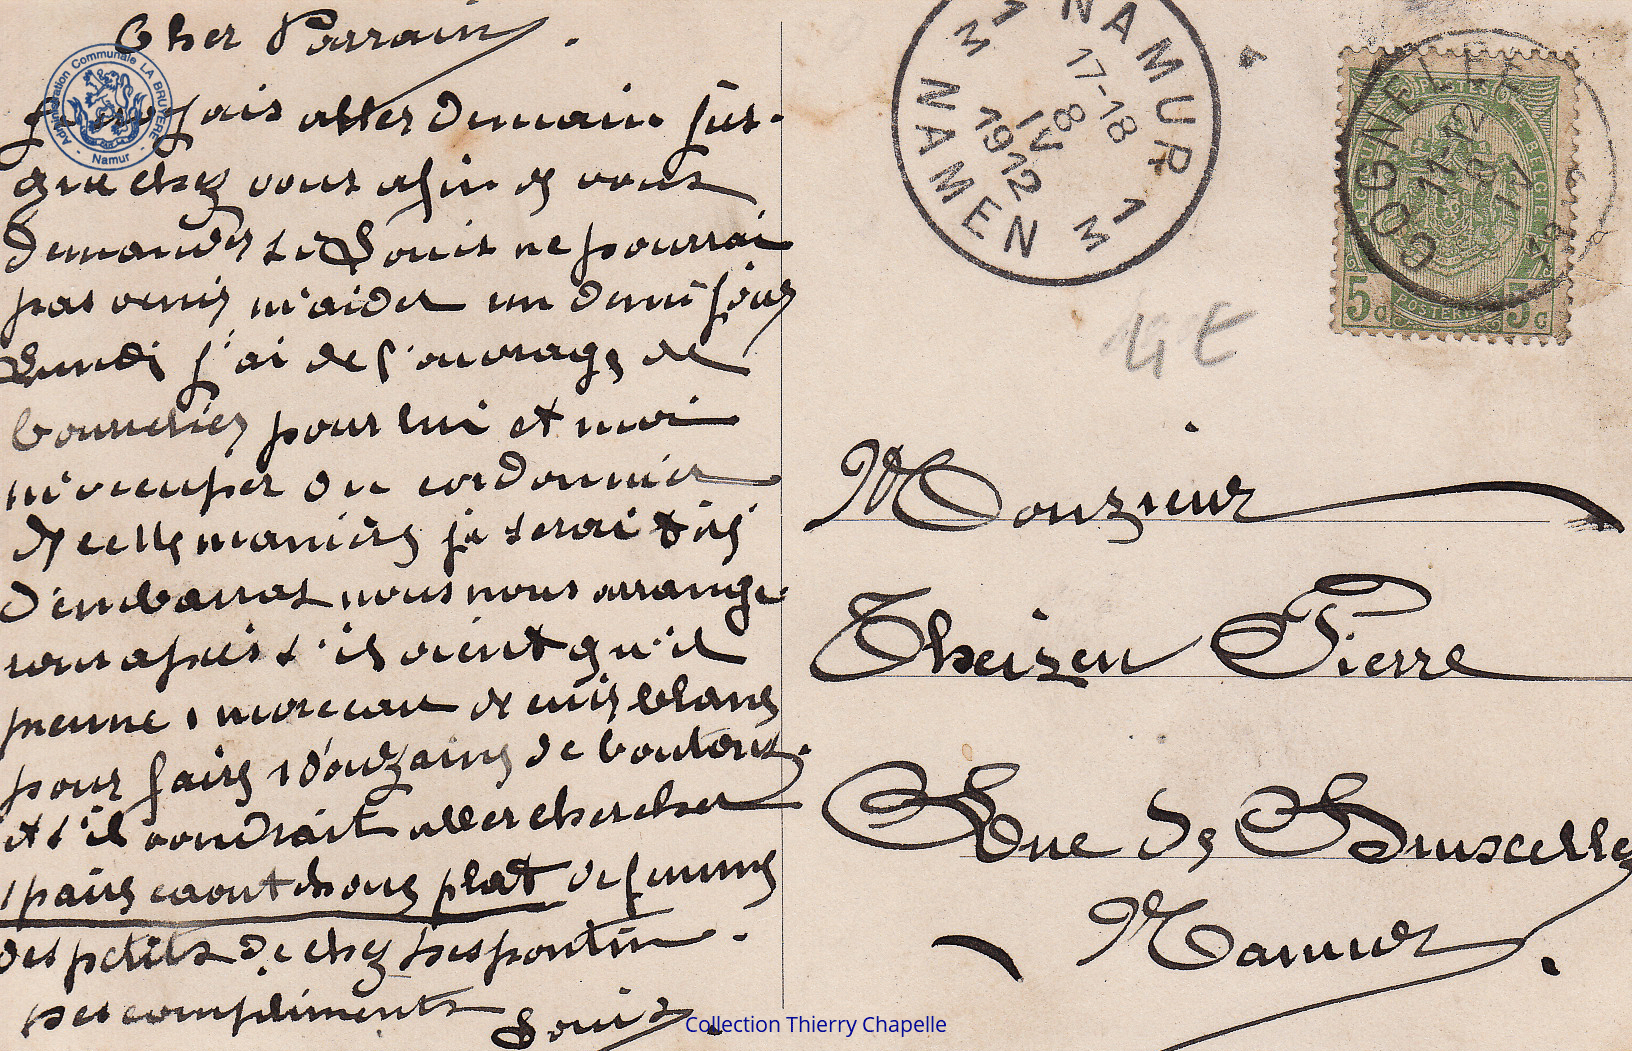 Cher Parrain.
je envoyais aller demain jus-
que chez vous afin de vous
demander si Louis ne pourrai
pas venir m'aider un demi jour
Lundi j'ai de l'ouvrage de
bourrelier pour lui et moi
m'occuper du cordonnier
de cette manière je serai très
d'embarras nous nous arrange
rons après s'il vient qu'il
prenne 1 morceau de cuir blanc
pour faire 1 douzaine de boutons.
et s'il voudrait aller chercher
1 paire caoutchouc plat de femme
des petits de chez
des compliments Louis.
Administration Communale LA BRUYERE
- Namur -
NAMUR 1
17-18
8
IV
1912
1M NAMEN 1M
COGNELÉE
11-12
POSTES
BELGIE
5c POSTERIJ 5c
4 €
Monsieur
Theizen Pierre
Rue de Bruxelles
Namur.
Collection Thierry Chapelle